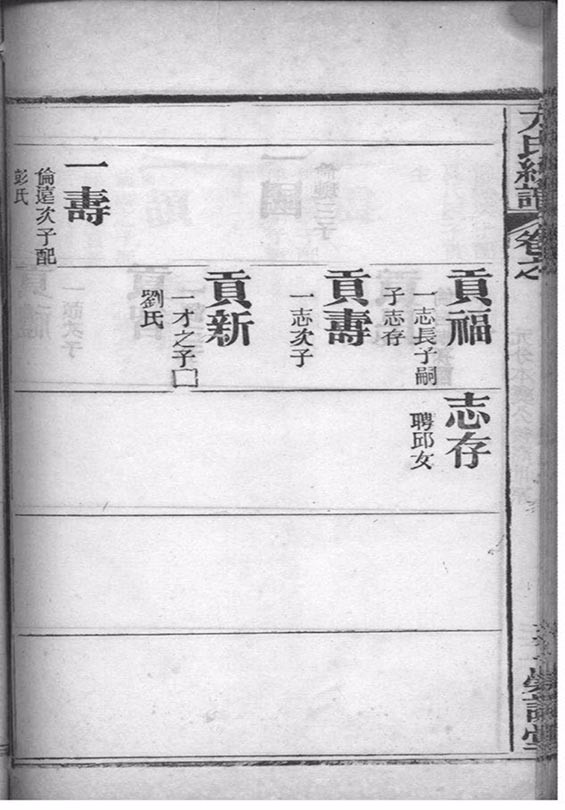 氏總譜
卷之
堂
貢福
一志長子嗣
子志存
志存
聘邱女
貢壽
一志次子
貢新
一才之子□
劉氏
一壽
倫達次子配
彭氏